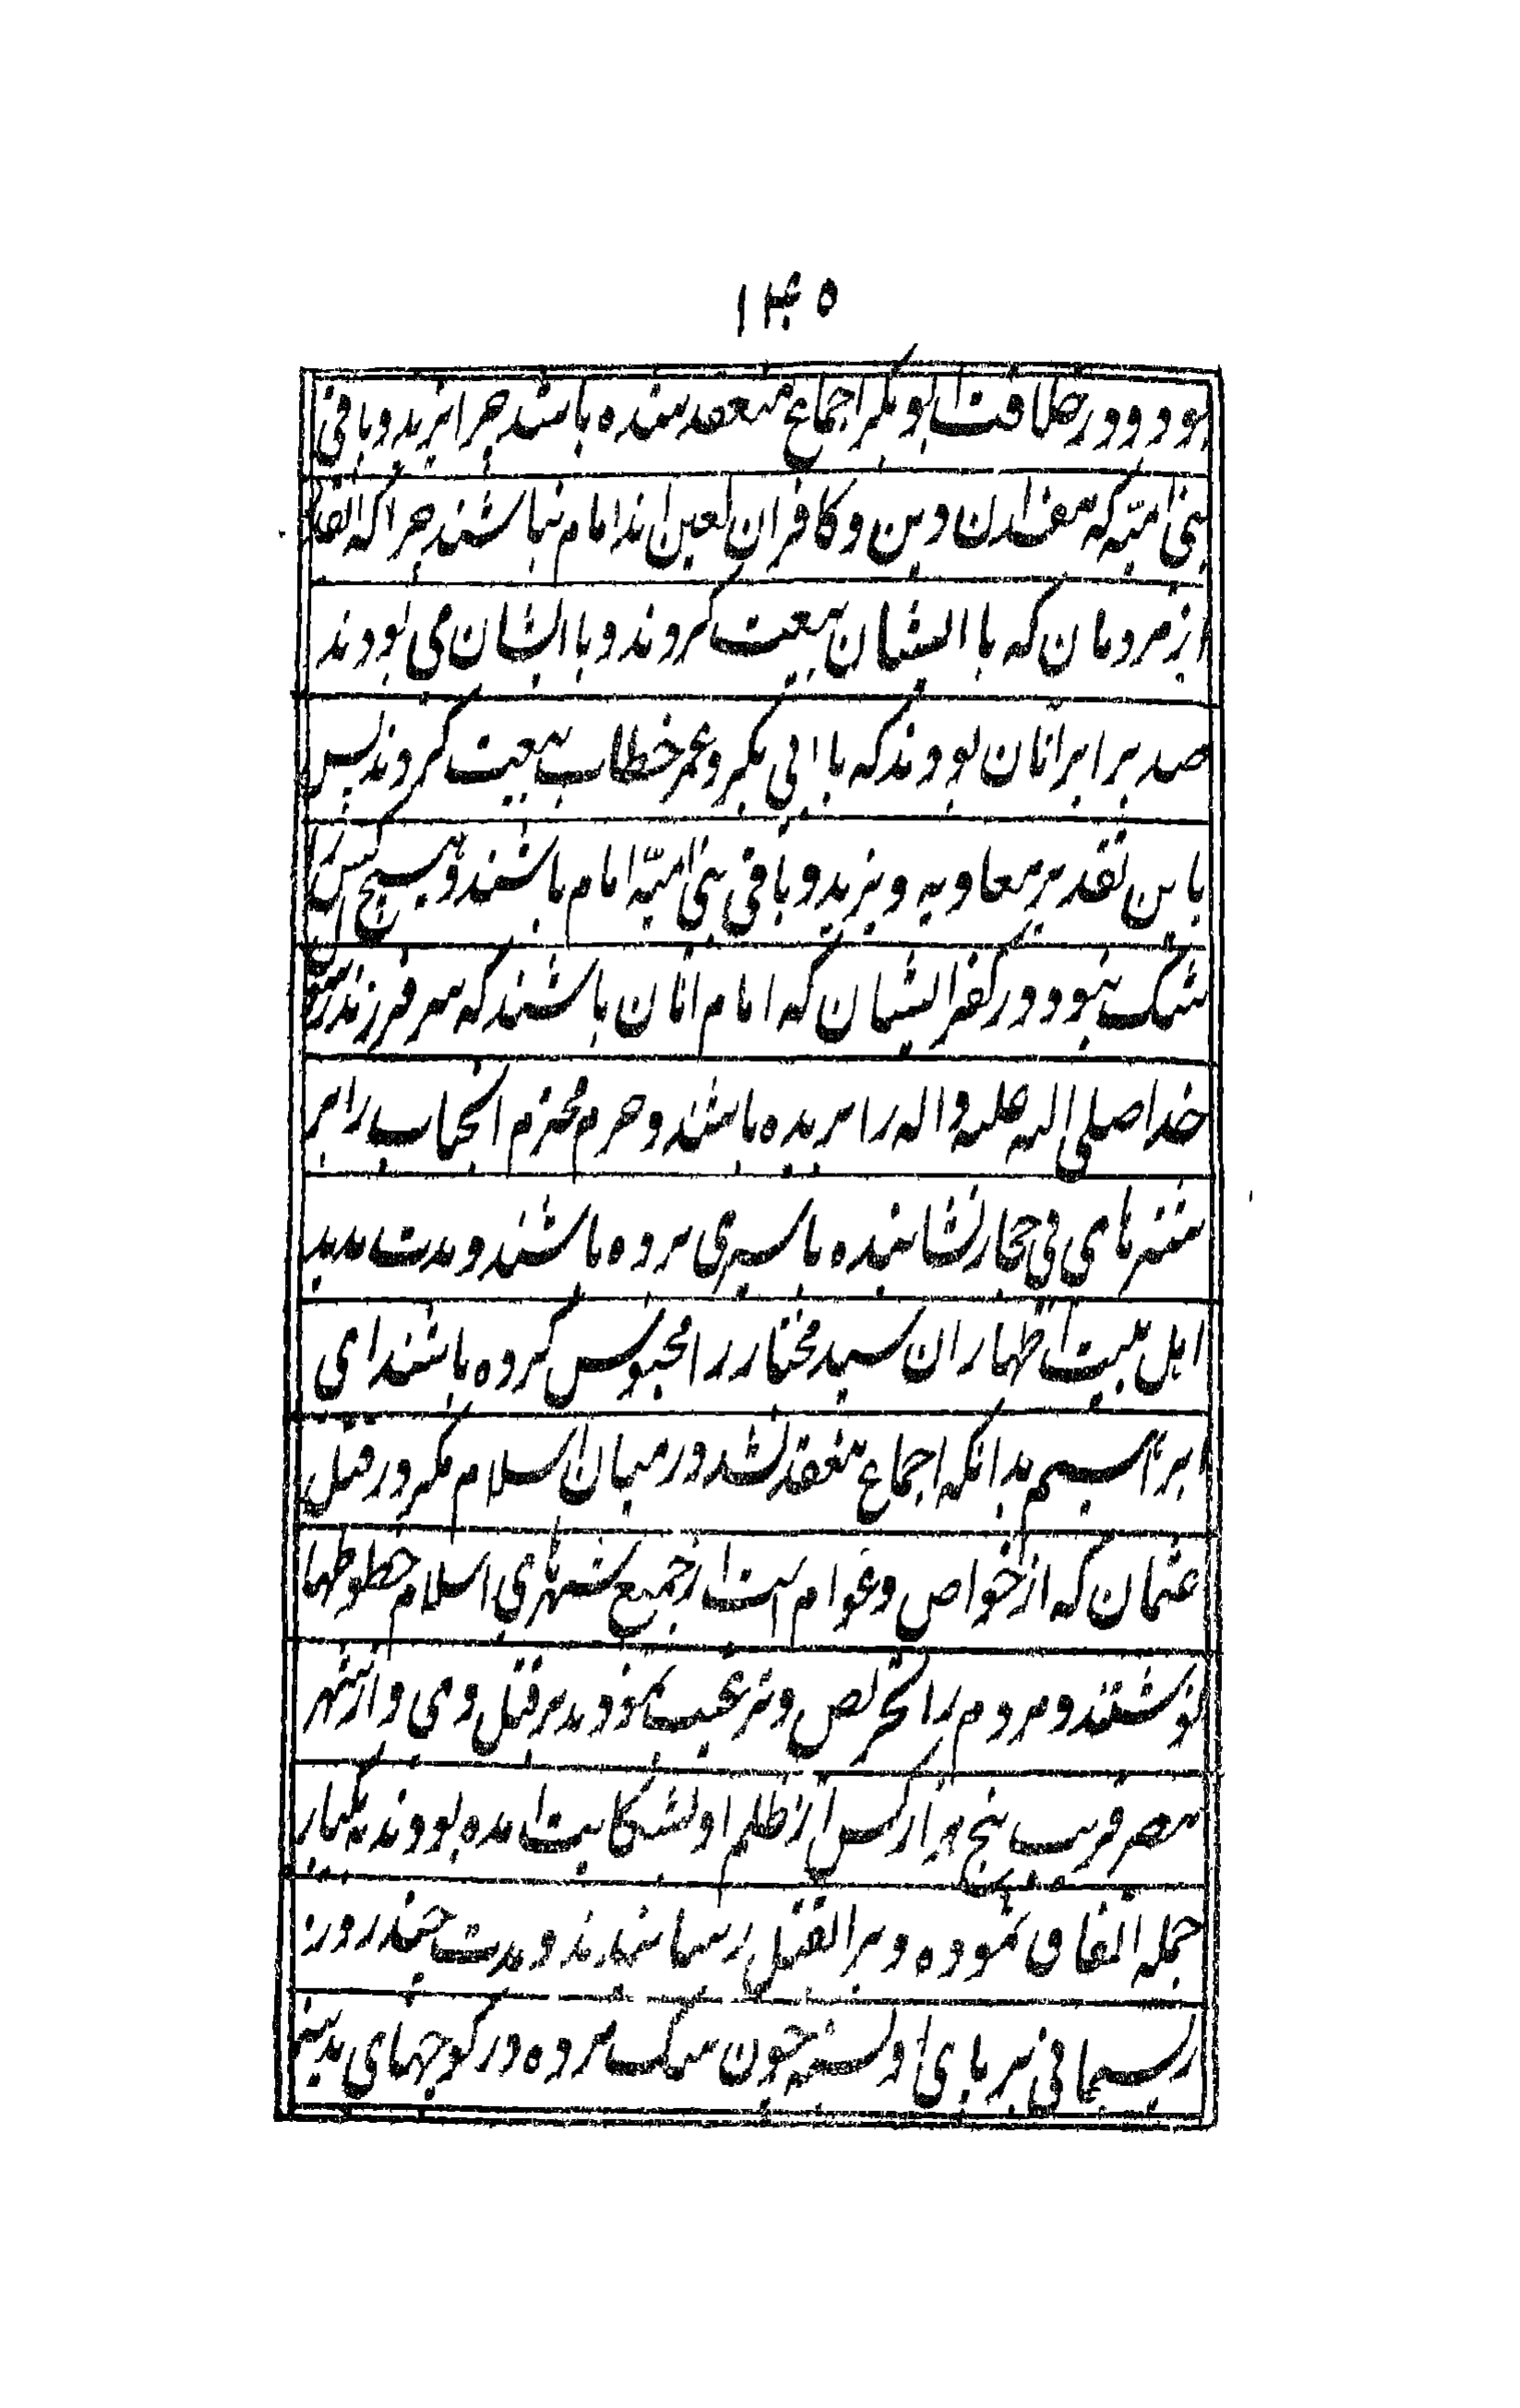 ۱۴۵
بود و در خلافت ابوبکر اجماع منعقد شده باشد چرا یزید و باقی
بنی امیّه که مفسدان دین و کافران لعین اند امام نباشند چرا که
از مردمان که با ایشان بیعت کردند و با ایشان می بودند
صد برابر انان بودند که با ابی بکر و عمر خطاب بیعت کردند پس
باین تقدیر معاویه و یزید و باقی بنی امیّه امام باشند و هیچ کس را
شک نبود در کفر ایشان که امام انان باشند که سر فرزند رسول
خدا صلی الله علیه و اله را بریده باشند و حرم محترم انجناب را بر
شتر های بی جهاز نشانیده باسیری برده باشند و مدت مدید
اهل بیت اطهار ان سید مختار را محبوس کرده باشند ای
ابراهیم بدانکه اجماع منعقد نشد در میان اسلام مگر در قتل
عثمان که از خواص و عوام است از جمیع شهرهای اسلام خطوطها
نوشتند و مردم را تحریص و ترغیب نمودند بر قتل وی و از شهر
مصر قریب پنج هزار کس از ظلم او بشکایت امده بودند به یکبار
جمله اتفاق نموده و برا بقتل رسانیدند و مدت چند روز
ریسمانی بر پای او بسته چون سک مرده در کوچهای مدینه